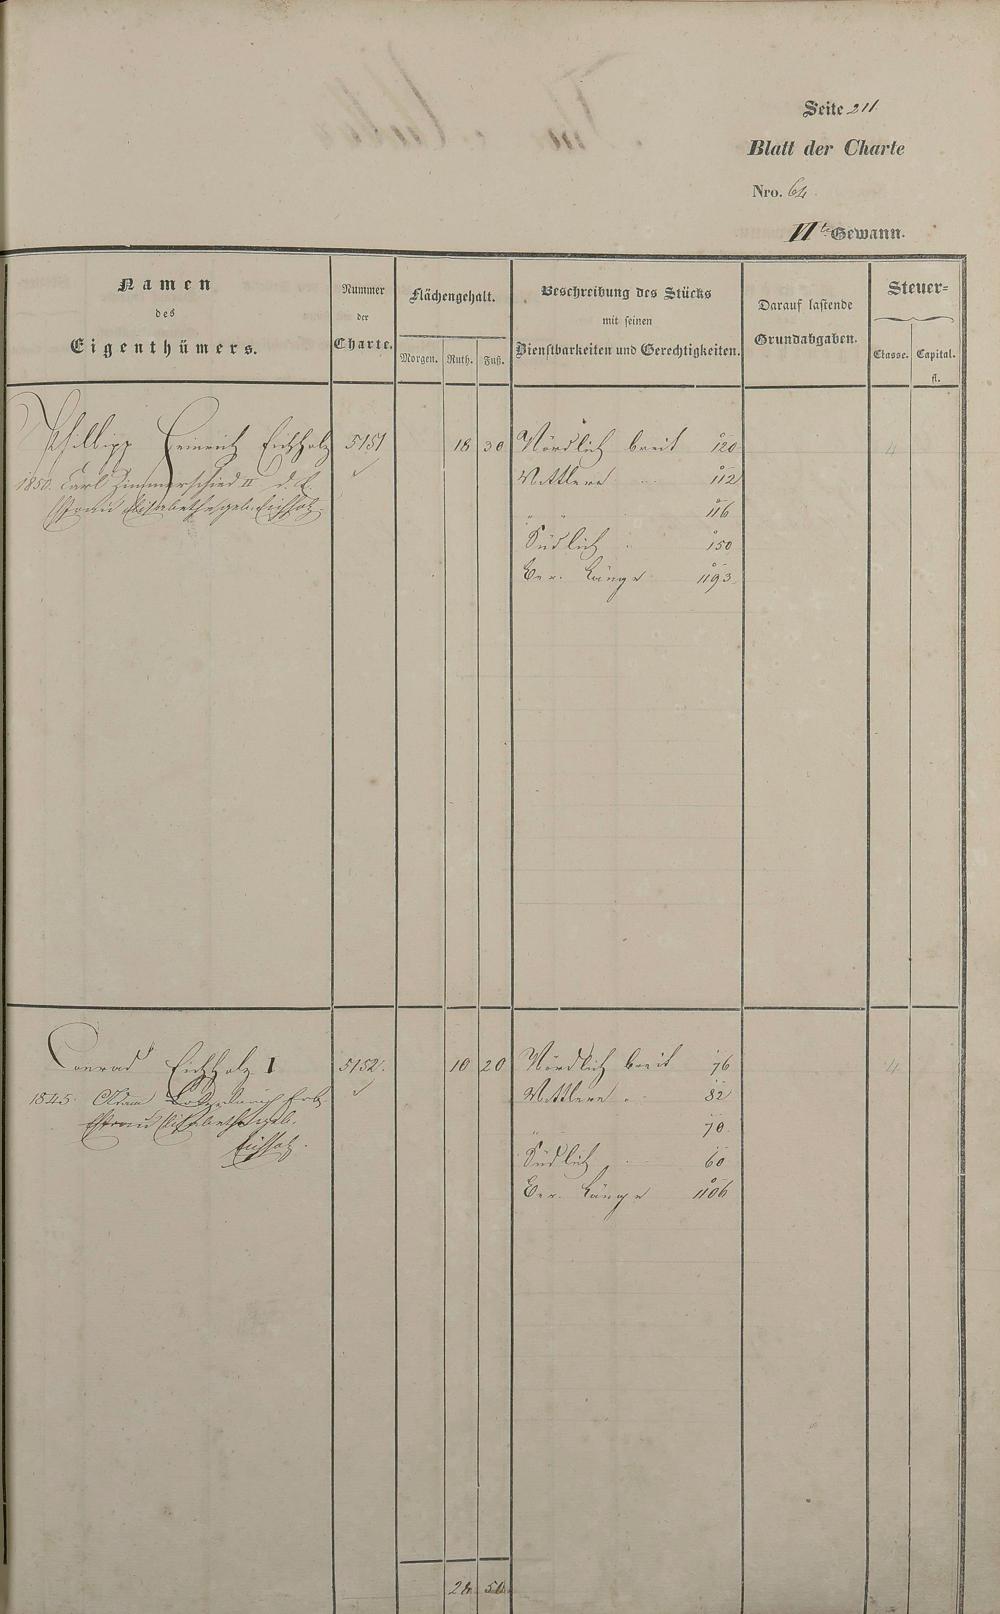 Seite 211.
Blatt der Charte
Nro. 64
VIte Gewann.
Namen
des
Eigenthümers.
Nummer
der
Charte.
Flächengehalt.
Morgen. Ruth. Fuß.
Beschreibung des Stücks
mit seinen
Dienstbarkeiten und Gerechtigkeiten.
Darauf lastende
Grundabgaben.
Steuer=
Classe. Capital.
fl.
Philipp Heinrich Eichholz 5151 18 30 Nördlich breit 120 4
1850. Carl Zimmerschied II d. E. Mittlere 112
Ehfrau Elisabethe geb. Eichholz. " 116
Südlich 150
Ber. Länge 1193
Conrad Eichholz 1 5152. 10 20 Nördlich breit 76 4
1845. Adam Erb Mittlere 82
Ehfrau Elisabetha geb. " 70
Eichholz. Südlich 60
Ber. Länge 1106
28 50